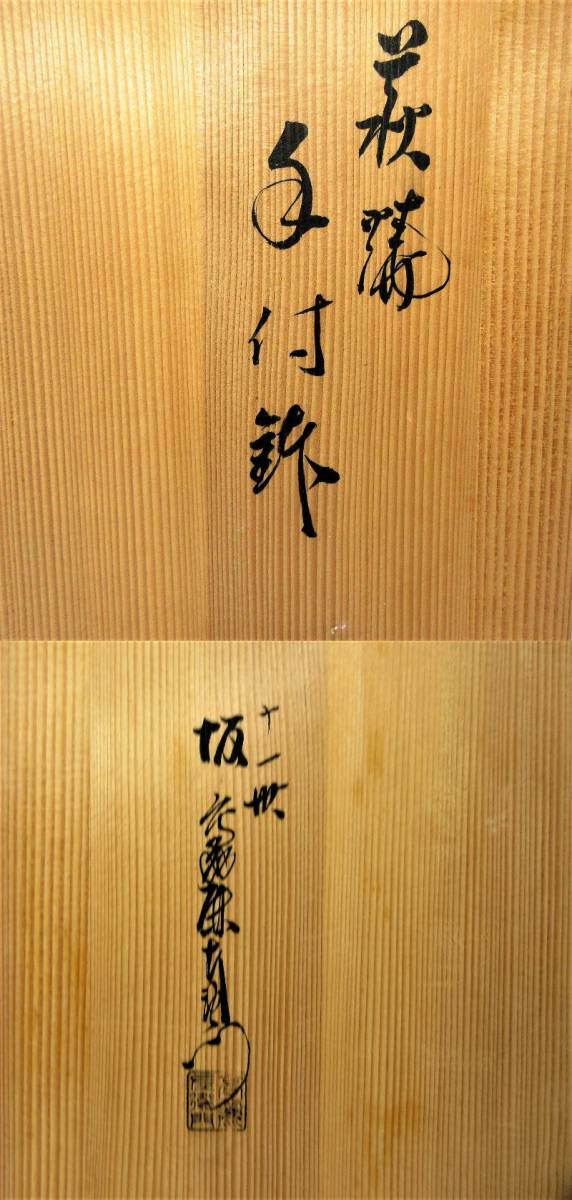 萩燒
手付鉢
十一世
坂高麗左衛門